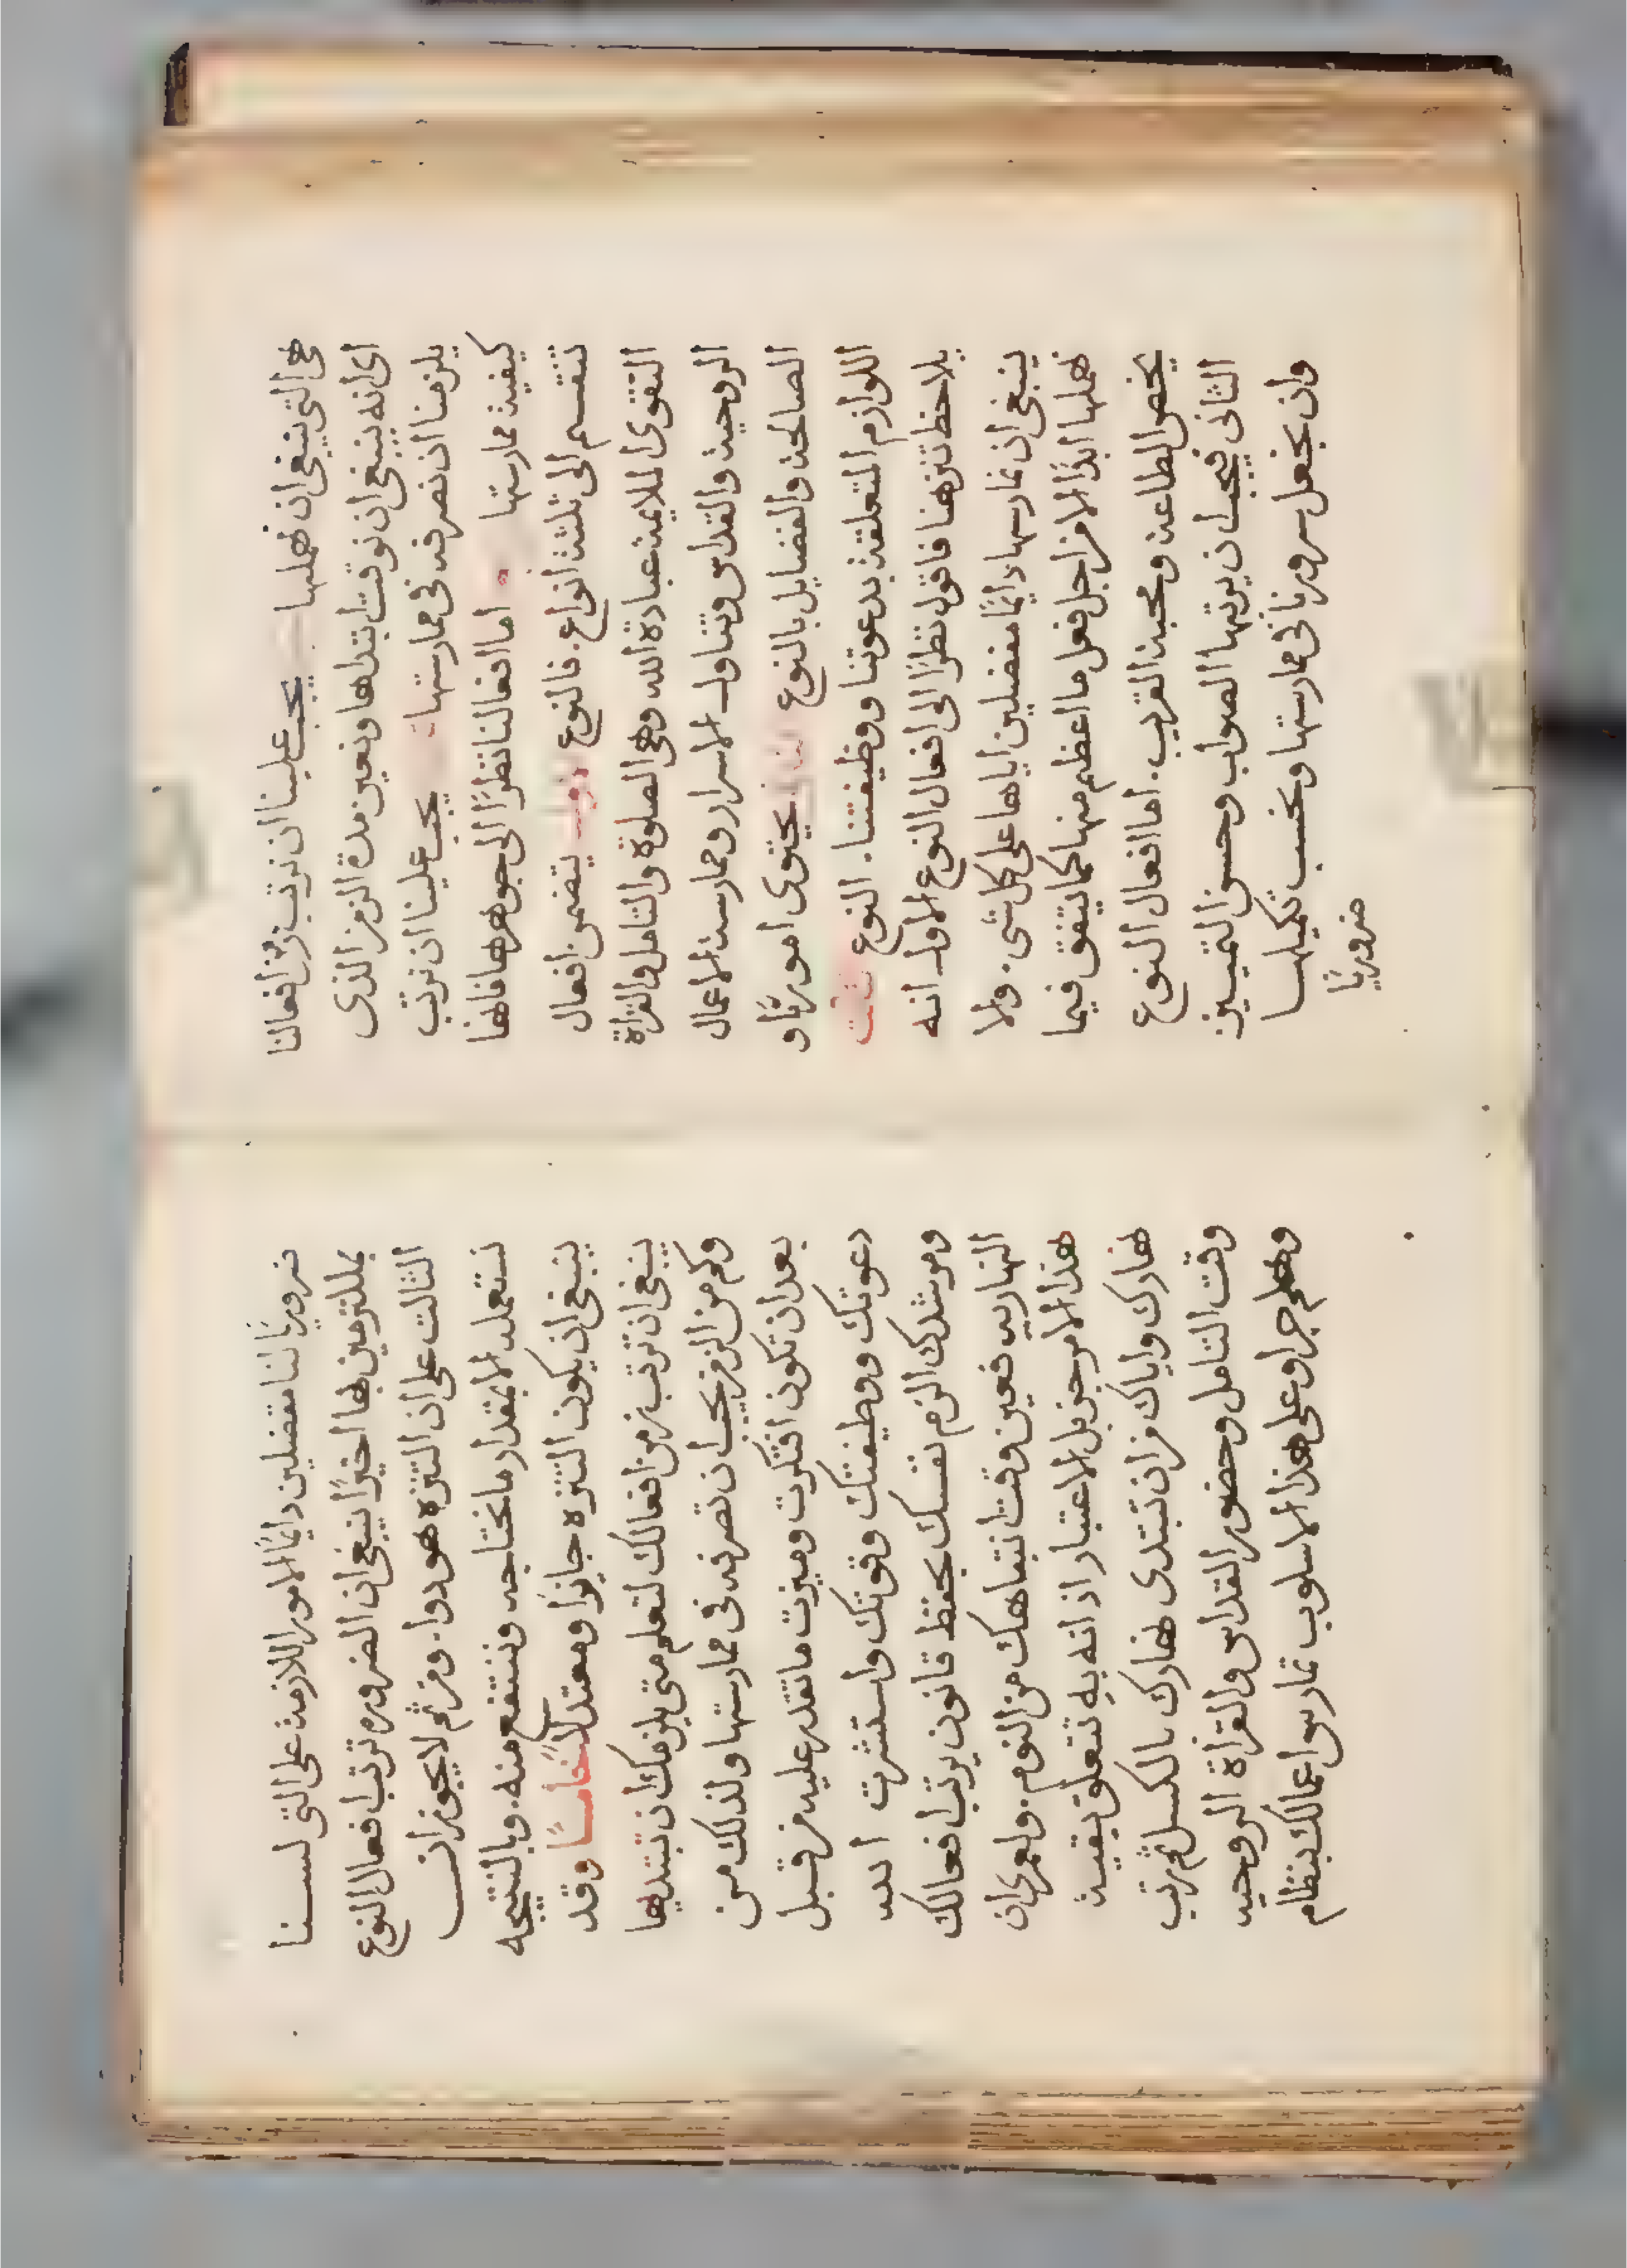 هي التي ينبغي ان نهملها يجب علينا ان نرتب زمن افعالنا
اي انه ينبغي ان نوقت ابتداها ونعين مدة الزمن الذي
يلزمنا ان نصرفه في ممارستها يجب علينا ان نرتب
كيفية ممارستها اما افعالنا نظرًا الى جوهرها فانها
تنقسم الى ثلثة انواع. فالنوع يتضمن افعال
التقوى الملايمة عبادة الله وهي الصلوة والتامل والقراة
الروحية والقداس وتناول الاسرار وممارسة الاعمال
الصالحة والفضايل بالنوع يحتوي امورنا و
اللوازم المتعلقة بدعوتنا ووظيفتنا. النوع
يلاحظ تنزهنا فاقول نظرًا الى افعال النوع الاول انه
ينبغي ان نمارسها دايمًا مفضلين اياها على كل شي. ولا
نهملها ابدًا الا من اجل فعل ما اعظم منها كما يتفق فيما
يخص الطاعة ومحبة القريب. اما افعال النوع
الثاني فيجب ان يرتبها الصواب وحسن التمييز
وان نجعل سرورنا في ممارستها ونحسب تكميلها
ضروريًا
ضروريًا لنا مفضلين دايمًا الامور اللازمة على التي لسنا
بملتزمين بها اخيرًا ينبغي ان الضرورة ترتب افعال النوع
الثالث على ان التنزه هو دوا. ومن ثم لا يجوز ان
نستعمله الا بمقدار ما نحتاجه وننتفع منه. وبالنتيجه
ينبغي ان يكون التنزه جايزًا ومعتدلًا خامسًا وقد
ينبغي ان ترتب زمن افعالك لتعلم متى يلزمك ان تبتديها
وكم من الزمن يجب ان تصرفه في ممارستها ولذلك من
بعد ان تكون افتكرت وميزت ما تقدر عليه من قبل
دعوتك ووظيفتك وقوتك واستشرت الله
ومرشدك الزم نفسك بحفظ قانون يرتب افعالك
النهاريه فعين وقت انتباهك من النوم. ولعمري ان
هذا الامر جزيل الاعتبار اذ انه به تتعلق بقية
نهارك واياك من ان تبتدي نهارك بالكسل ثم رتب
وقت التامل وحضور القداس والقراة الروحيه
وهلم جرا وعلى هذا الاسلوب تمارس اعمالك بنظام